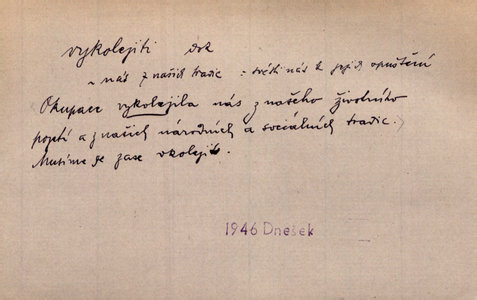 vykolejiti dok
~ nás z našich tradic : svésti nás k jejich opuštění
Okupace vykolejila nás z našeho životního
pojetí a z našich národních a sociálních tradic.
Musíme se zase vkolejit.
1946 Dnešek